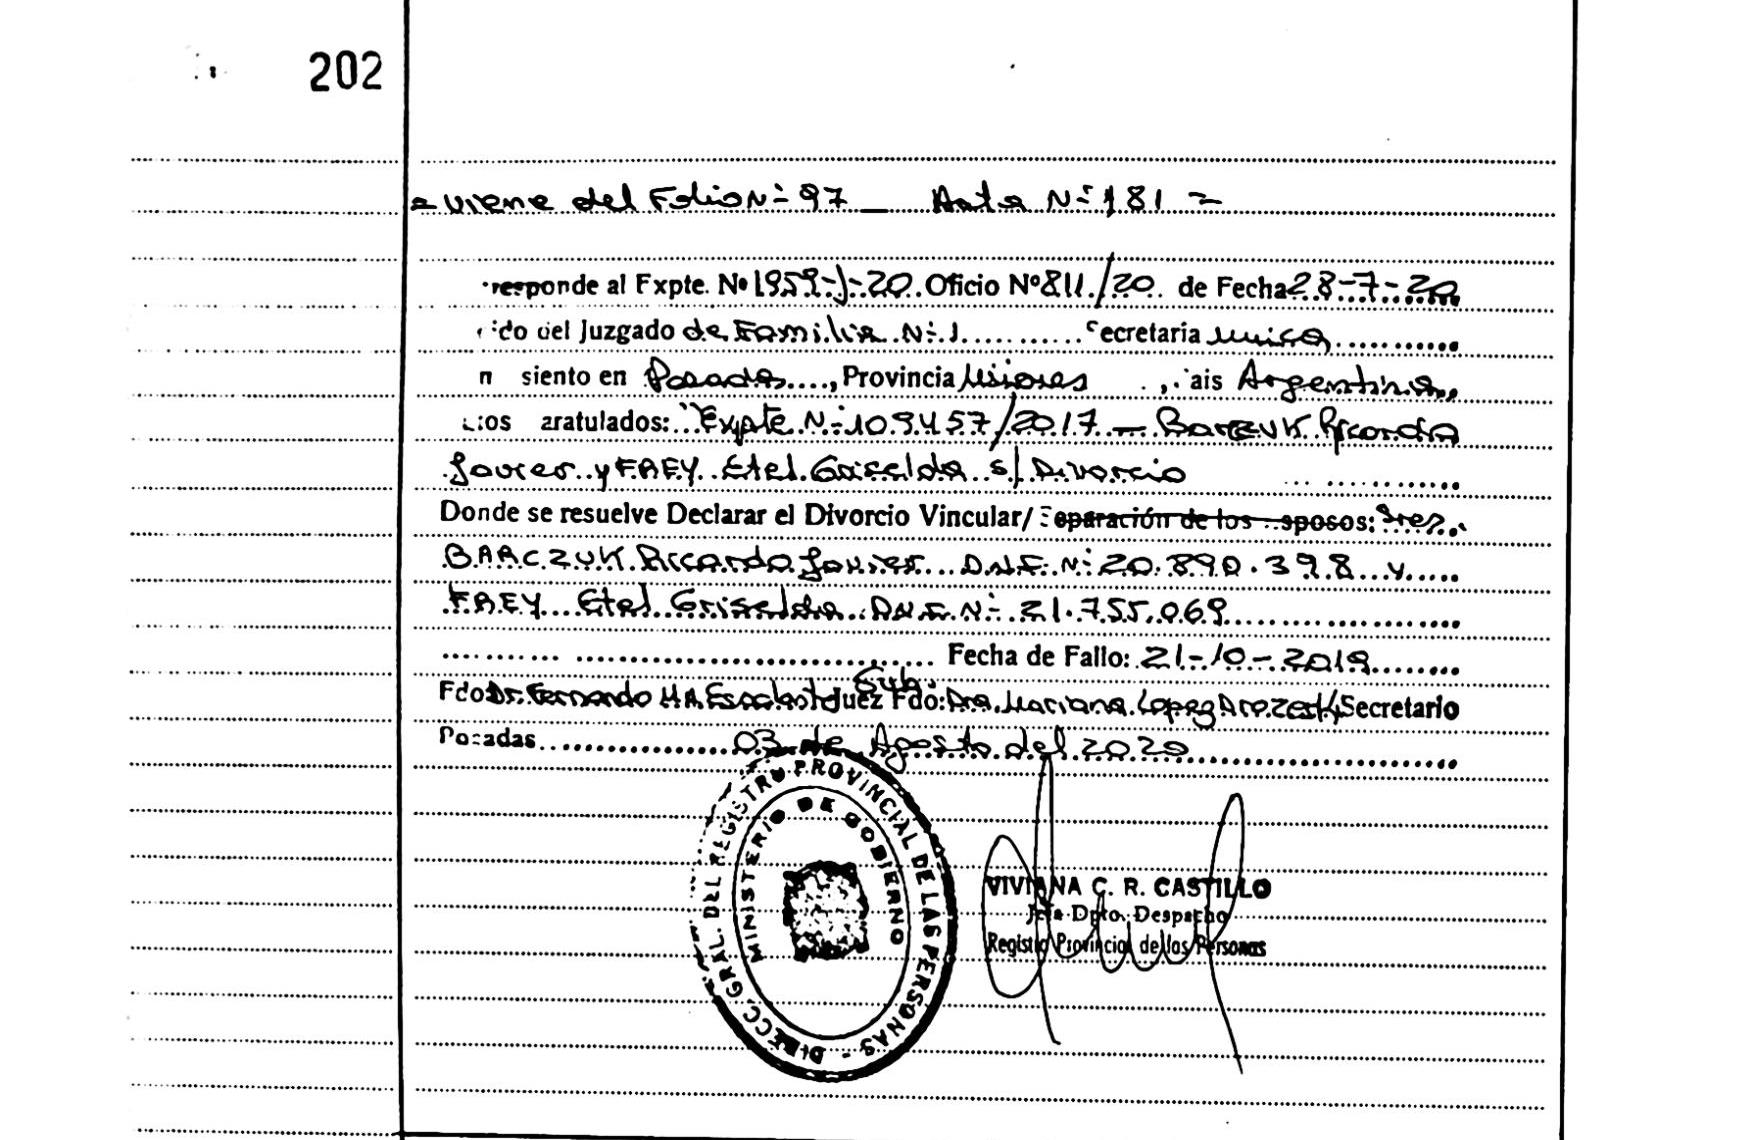 202
= viene del Folio Nº 97 — Acta Nº 181 =
responde al Expte. Nº 1959-J-20. Oficio Nº 811/20. de Fecha 28-7-20
do del Juzgado de Familia Nº 1.......... Secretaria unica..........
n siento en Posadas...., Provincia Misiones ,. ais Argentina,
ros aratulados: "Expte Nº 109457/2017 — Barczuk Ricardo
Javier y FAEY Etel Griselda s/ Divorcio
Donde se resuelve Declarar el Divorcio Vincular/ Separación de los sposos: Sres.
BARCZUK Ricardo Javier D.N.I. Nº 20.890.398 y.....
FAEY Etel Griselda D.N.I. Nº 21.755.069
Fecha de Fallo: 21-10-2019
Sub.
Fdo Dr. Fernando M.A. Juez Fdo: Dra. Mariana Lopez Secretario
Posadas 03 de Agosto del 2020
DIRECC. GRAL. DEL REGISTRO PROVINCIAL DE LAS PERSONAS -
MINISTERIO DE GOBIERNO
VIVIANA C. R. CASTILLO
Jefa Dpto. Despacho
Registro Provincial de las Personas